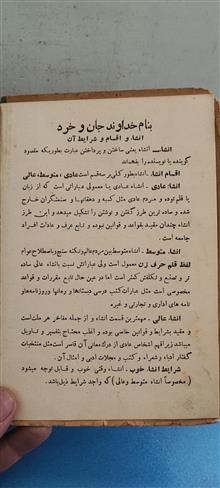 بنام خداوند جان و خرد
انشاء و اقسام و شرایط آن
انشاء ـ انشاء یعنی ساختن و پرداختن عبارت بطوریکه مقصود
گوینده یا نویسنده را بفهماند
اقسام انشاء ـ انشاء بطور کلی بر سه قسم است عادی، متوسط، عالی
انشاء عادی ـ انشاء عادی یا معمولی عباراتی است که از زبان
یا قلم توده و مردم عادی مثل کسبه و دهقانها و صنعتگران خارج
شده و ساده ترین طرز گفتن و نوشتن را تشکیل میدهد و این طرز
انشاء چندان مقید بقواعد و قوانین نبوده و تابع عرف و عادات افراد
جامعه است.
انشاء متوسط ـ انشاء متوسط بین مردم عالم و نکته سنج و باصطلاح عوام
لفظ قلم حرف زن معمول است ولی عباراتش نسبت بانشاء عالی ساده
تر و تصنع و تکلفش کمتر است اما در عین حال تابع مقررات و قواعد
مخصوصی است مثل عبارات کتب درسی دبستانها و رمانها و روزنامه‌ها و
نامه های اداری و تجارتی و غیره
انشاء عالی ـ مهمترین قسمت انشاء و از جمله مفاخر هر ملت است
و مقید بشرایط و قوانین خاصی بوده و اغلب محتاج بتفسیر و تاویل
میباشد زیرا فهم اشخاص عادی از درک معانی آن قاصر است مثل منتخبات
گفتار ادباء و شعراء و کتب و مجلات ادبی و امثال آن.
شرایط انشاء خوب ـ انشاء وقتی خوب و قابل توجه میشود
(مخصوصاً انشاء متوسط و عالی) که واجد شرایط ذیل باشد.